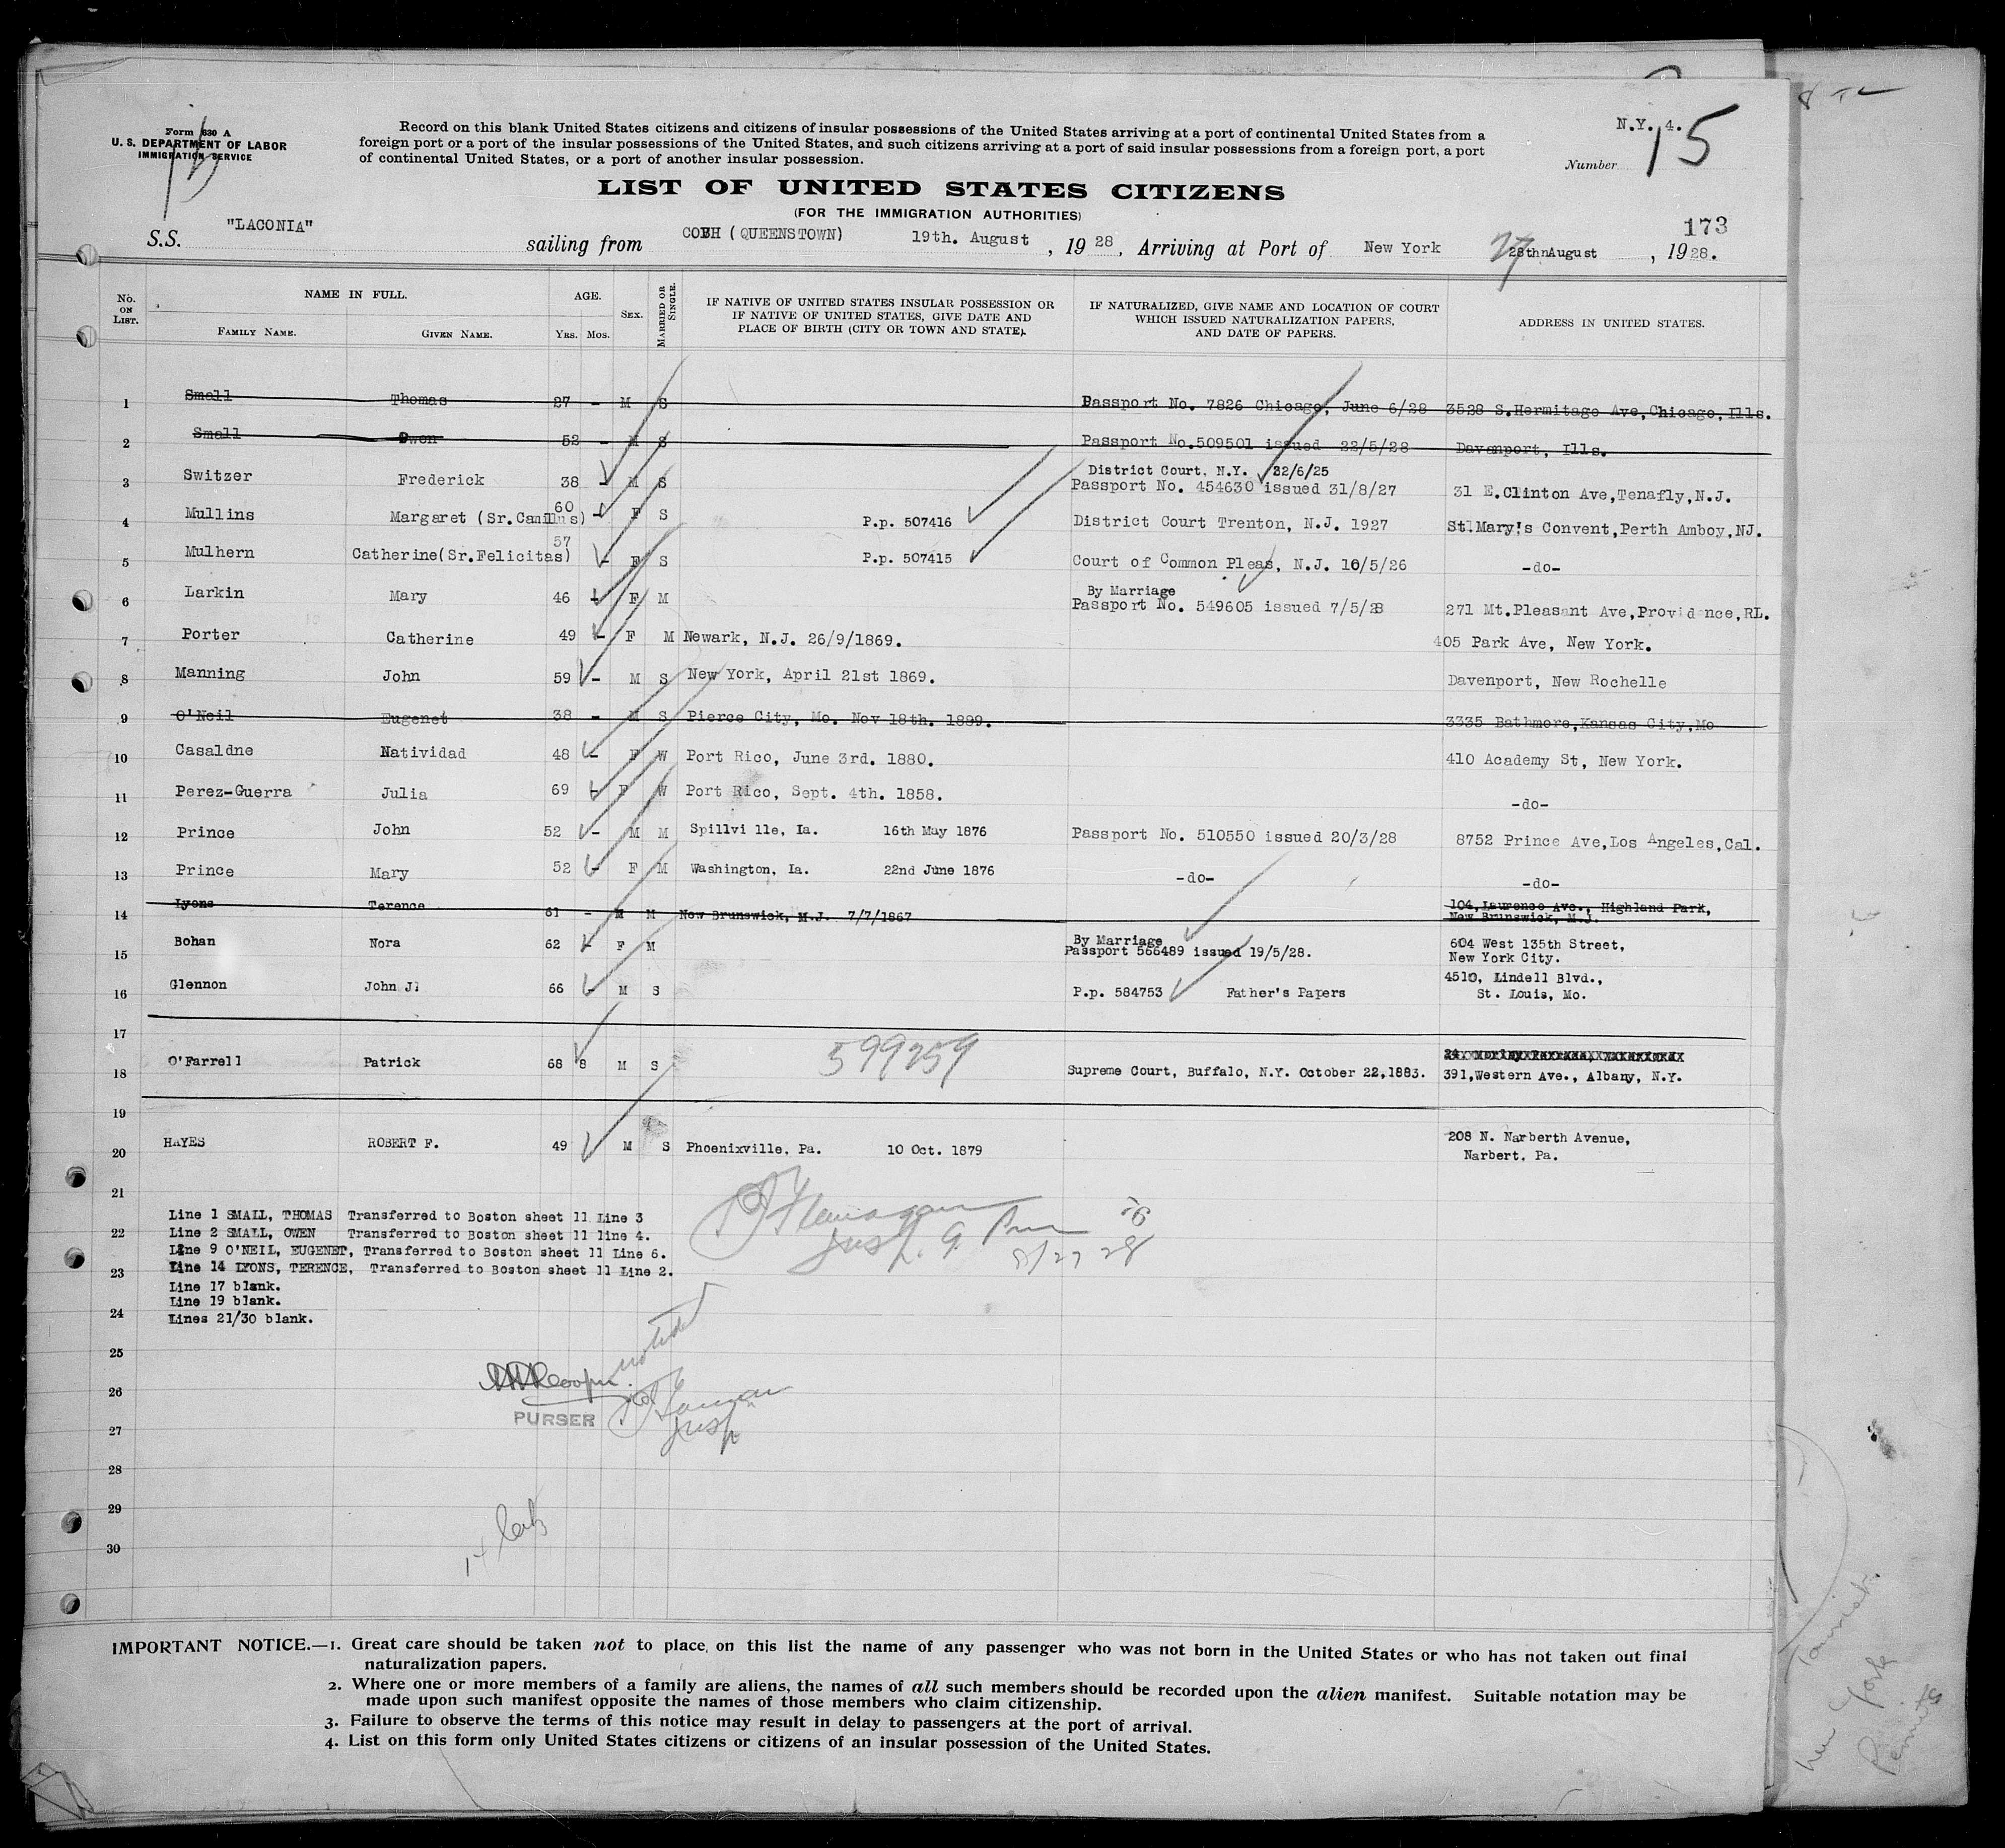 Form 630 A
U. S. DEPARTMENT OF LABOR
IMMIGRATION SERVICE
Record on this blank United States citizens and citizens of insular possessions of the United States arriving at a port of continental United States from a
foreign port or a port of the insular possessions of the United States, and such citizens arriving at a port of said insular possessions from a foreign port, a port
of continental United States, or a port of another insular possession.
N.Y. 4.
Number 15
LIST OF UNITED STATES CITIZENS
(FOR THE IMMIGRATION AUTHORITIES)
173
S.S. "LACONIA" sailing from COBH (QUEENSTOWN) 19th. August, 1928, Arriving at Port of New York 27 28thnAugust, 1928.
No. ON LIST. NAME IN FULL. FAMILY NAME. GIVEN NAME. AGE. YRS. MOS. SEX. MARRIED OR SINGLE. IF NATIVE OF UNITED STATES INSULAR POSSESSION OR IF NATIVE OF UNITED STATES, GIVE DATE AND PLACE OF BIRTH (CITY OR TOWN AND STATE). IF NATURALIZED, GIVE NAME AND LOCATION OF COURT WHICH ISSUED NATURALIZATION PAPERS, AND DATE OF PAPERS. ADDRESS IN UNITED STATES.
1 Small Thomas 27 - M S Passport No. 7826 Chicago, June 6/28 3528 S.Hermitage Ave,Chicago,Ills.
2 Small Owen 52 - M S Passport No.509501 issued 22/5/28 Davenport, Ills.
District Court, N.Y. 22/6/25
3 Switzer Frederick 38 - M S Passport No. 454630 issued 31/8/27 31 E.Clinton Ave,Tenafly,N.J.
4 Mullins Margaret (Sr.Camillus) 60 - F S P.p. 507416 District Court Trenton, N.J. 1927 St.Mary's Convent,Perth Amboy,NJ.
5 Mulhern Catherine(Sr.Felicitas) 57 - F S P.p. 507415 Court of Common Pleas, N.J. 10/5/26 -do-
By Marriage
6 Larkin Mary 46 - F M Passport No. 549605 issued 7/5/28 271 Mt.Pleasant Ave,Providence,RL.
7 Porter Catherine 49 - F M Newark, N.J. 26/9/1869. 405 Park Ave, New York.
8 Manning John 59 - M S New York, April 21st 1869. Davenport, New Rochelle
9 O'Neil Eugenet 38 - M S Pierce City, Mo. Nov 18th. 1889. 3335 Bathmore,Kansas City,Mo
10 Casaldne Natividad 48 - F W Port Rico, June 3rd. 1880. 410 Academy St, New York.
11 Perez-Guerra Julia 69 - F W Port Rico, Sept. 4th. 1858. -do-
12 Prince John 52 - M M Spillville, Ia. 16th May 1876 Passport No. 510550 issued 20/3/28 8752 Prince Ave,Los Angeles,Cal.
13 Prince Mary 52 - F M Washington, Ia. 22nd June 1876 -do- -do-
14 Lyons Terence 61 - M M New Brunswick, N.J. 7/7/1867 104,Laurence Ave., Highland Park,
New Brunswick, N.J.
By Marriage
15 Bohan Nora 62 - F M Passport 566489 issued 19/5/28. 604 West 135th Street,
New York City.
16 Glennon John J. 66 - M S P.p. 584753 Father's Papers 4510, Lindell Blvd.,
St. Louis, Mo.
17
599259
18 O'Farrell Patrick 68 8 M S Supreme Court, Buffalo, N.Y. October 22,1883. 391,Western Ave., Albany, N.Y.
19
20 HAYES ROBERT F. 49 M S Phoenixville, Pa. 10 Oct. 1879 208 N. Narberth Avenue,
Narbert, Pa.
21
Line 1 SMALL, THOMAS Transferred to Boston sheet 11 Line 3
22 Line 2 SMALL, OWEN Transferred to Boston sheet 11 line 4.
Line 9 O'NEIL, EUGENET, Transferred to Boston sheet 11 Line 6.
23 Line 14 LYONS, TERENCE, Transferred to Boston sheet 11 Line 2.
Line 17 blank.
Line 19 blank.
24 Lines 21/30 blank.
8/27 28
25
noted
26
PURSER
27
28
29
30
IMPORTANT NOTICE.—1. Great care should be taken not to place on this list the name of any passenger who was not born in the United States or who has not taken out final
naturalization papers.
2. Where one or more members of a family are aliens, the names of all such members should be recorded upon the alien manifest. Suitable notation may be
made upon such manifest opposite the names of those members who claim citizenship.
3. Failure to observe the terms of this notice may result in delay to passengers at the port of arrival.
4. List on this form only United States citizens or citizens of an insular possession of the United States.
New York
Permits